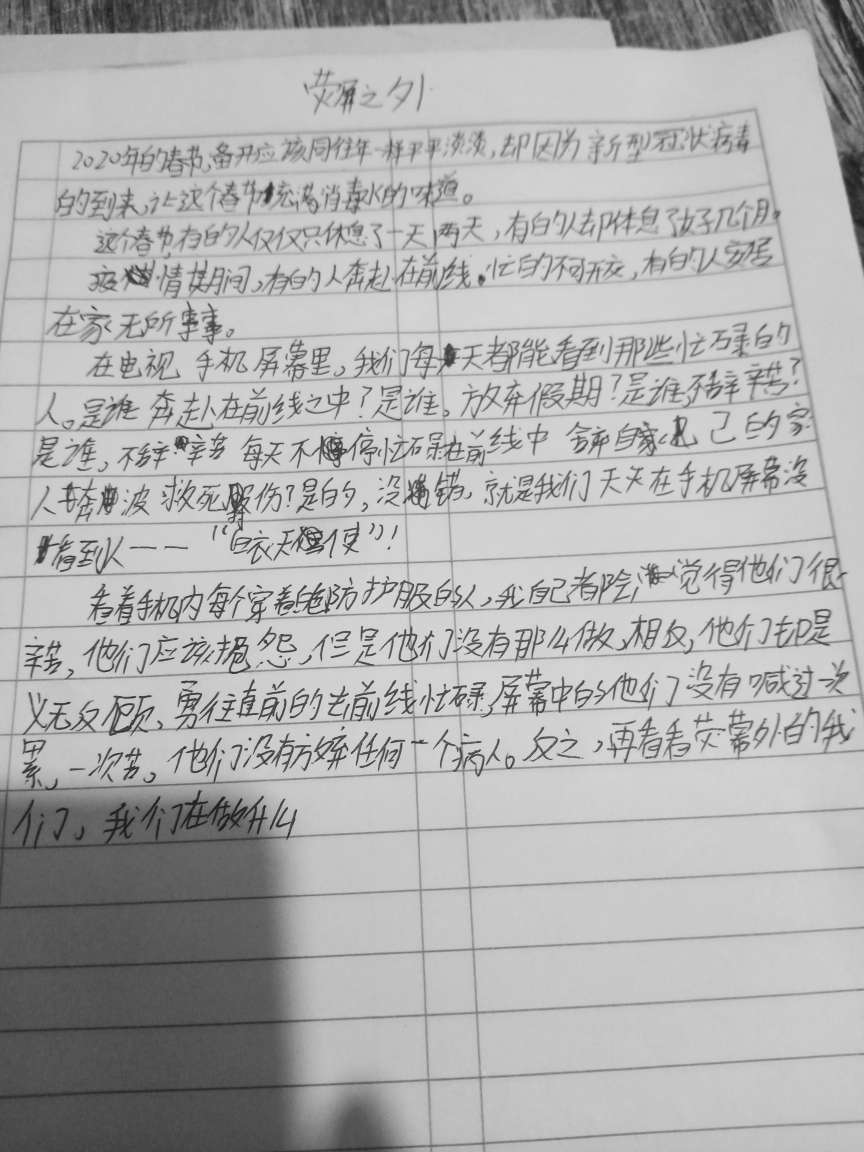 荧屏之外
2020年的春节,备开应该同往年一样平平淡淡,却因为新型冠状病毒
的到来,让这个春节充满消毒水的味道。
这个春节,有的人仅仅只休息了一天两天,有的人却休息了好几个月。
疫情其期间,有的人奔赴在前线。忙的不可开交,有的人安居
在家无所事事。
在电视 手机屏幕里,我们每天都能看到那些忙碌的
人。是谁 奔赴在前线之中?是谁,放弃假期?是谁,不辞辛苦?
是谁,不辞辛苦 每天不停忙碌在前线中 舍弃自家 己的家
人奔波 救死 伤?是的,没错,就是我们天天在手机屏幕没
看到人——“白衣天使”!
看着手机内每个穿着 防护服的人,我自己都 觉得他们很
辛苦,他们应该抱怨,但是他们没有那么做,相反,他们却是
义无反顾、勇往直前的去前线忙碌,屏幕中的他们没有喊过一次
累,一次苦,他们没有放弃任何一个病人。反之,再看看荧幕外的我
们,我们在做什么